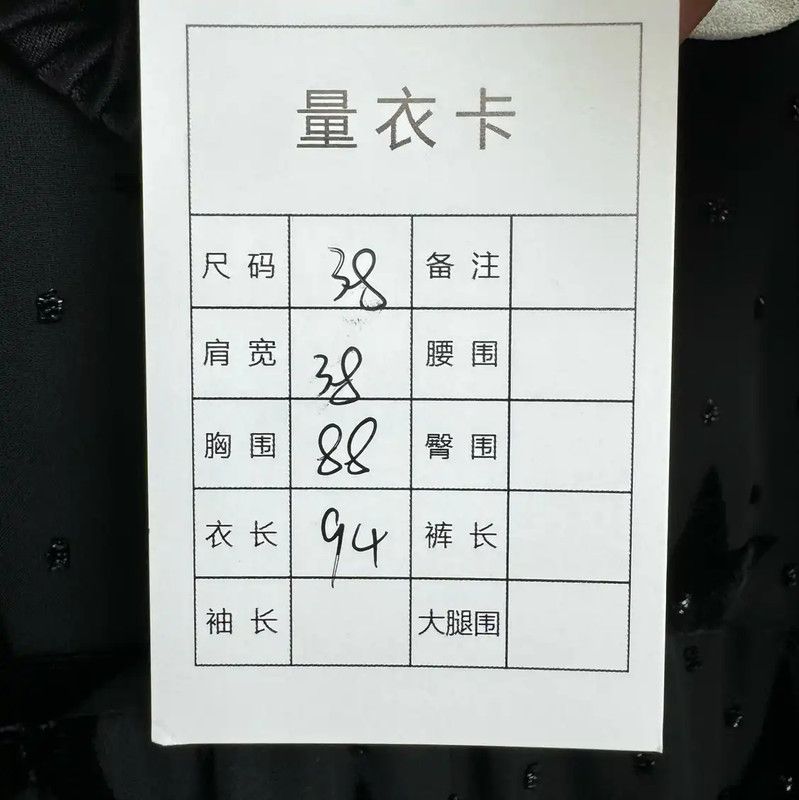 量衣卡
尺码 38 备注
肩宽 38 腰围
胸围 88 臀围
衣长 94 裤长
袖长 大腿围